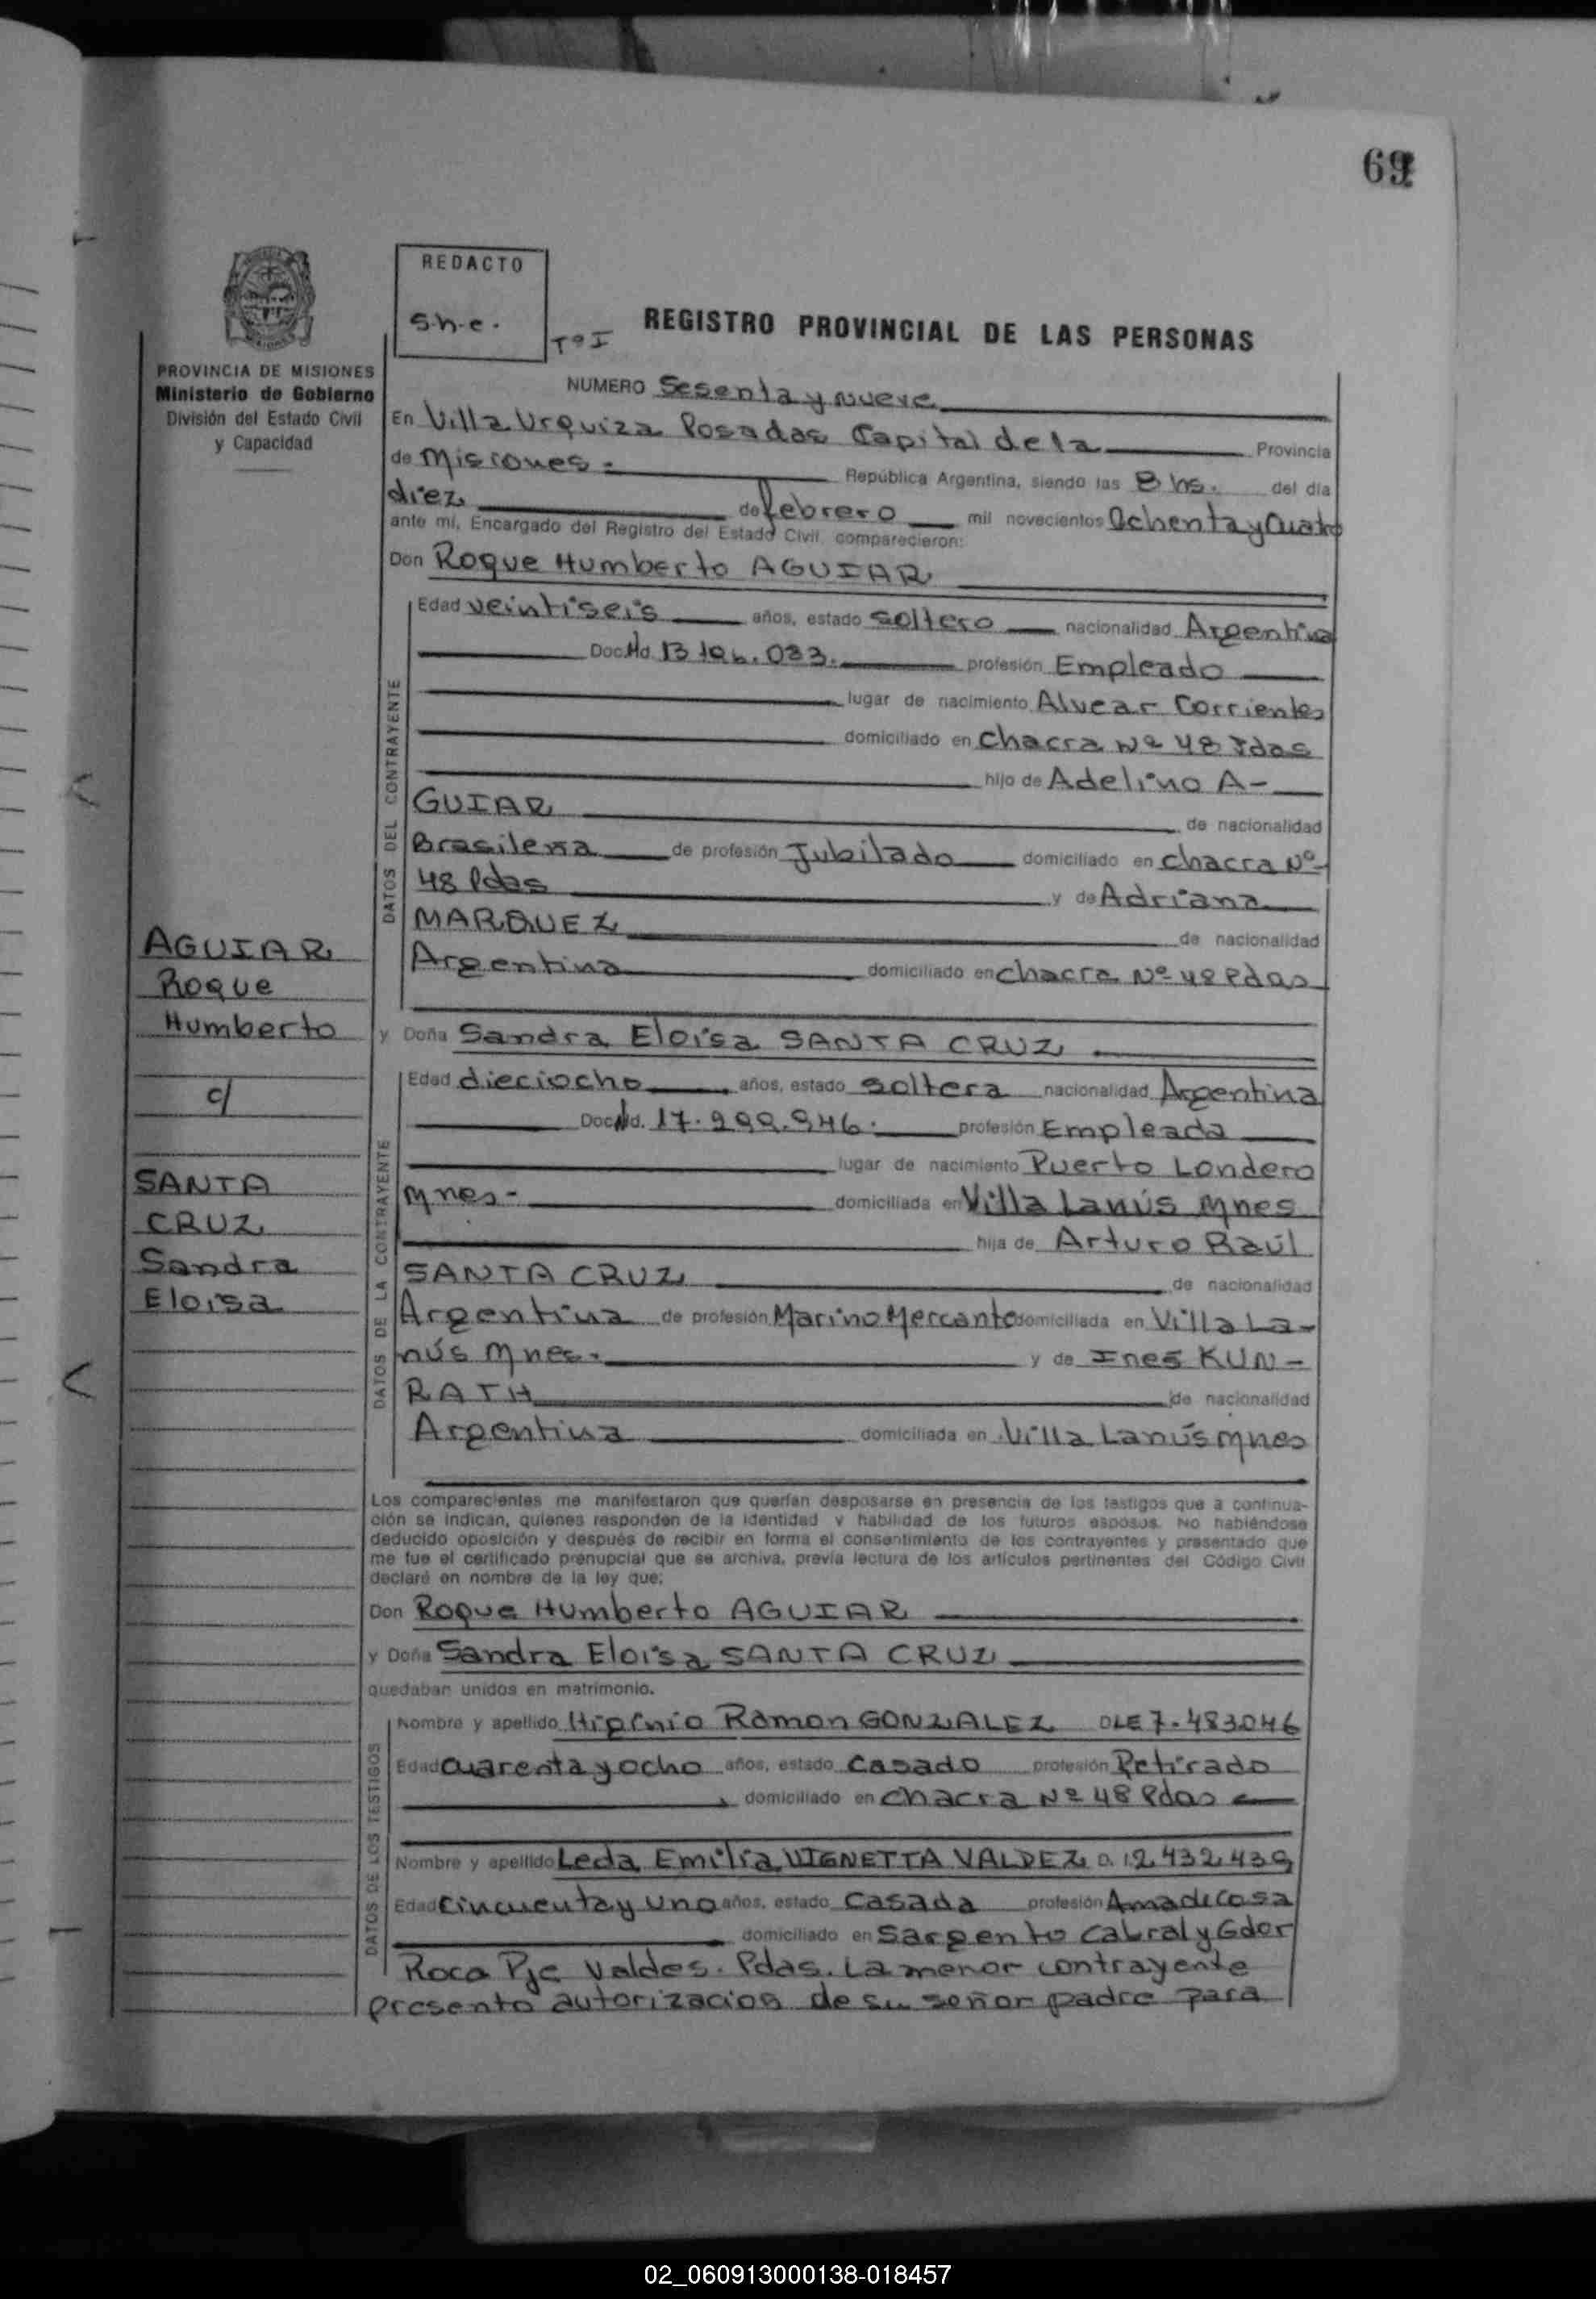 69
REDACTO
s.h.e.
Tº I
REGISTRO PROVINCIAL DE LAS PERSONAS
PROVINCIA DE MISIONES
Ministerio de Gobierno
División del Estado Civil
y Capacidad
NUMERO Sesenta y Nueve
En Villa Urquiza Posadas Capital de la Provincia
de Misiones = República Argentina, siendo las 8 hs. del día
diez de febrero mil novecientos Ochenta y Cuatro
ante mí, Encargado del Registro del Estado Civil, comparecieron:
Don Roque Humberto AGUIAR
DATOS DEL CONTRAYENTE
Edad veintiseis años, estado soltero nacionalidad Argentina
Doc. Nd. profesión Empleado
lugar de nacimiento Alvear Corrientes
domiciliado en chacra Nº 48 Pdas
hijo de Adelino A-
GUIAR de nacionalidad
Brasilena de profesión Jubilado domiciliado en chacra Nº
48 Pdas y de Adriana
MARQUEZ de nacionalidad
Argentina domiciliado en chacra Nº 48 Pdas
AGUIAR
Roque
Humberto
c/
SANTA
CRUZ
Sandra
Eloisa
y Doña Sandra Eloisa SANTA CRUZ
DATOS DE LA CONTRAYENTE
Edad dieciocho años, estado soltera nacionalidad Argentina
Doc. Nd. profesión Empleada
lugar de nacimiento Puerto Londero
Mnes- domiciliada en Villa Lanús Mnes
hija de Arturo Raúl
SANTA CRUZ de nacionalidad
Argentina de profesión Marino Mercante domiciliada en Villa La-
nús Mnes. y de Ines KUN-
RATH de nacionalidad
Argentina domiciliada en Villa Lanús Mnes
Los comparecientes me manifestaron que querían desposarse en presencia de los testigos que a continua-
ción se indican, quienes responden de la identidad y habilidad de los futuros esposos. No habiéndose
deducido oposición y después de recibir en forma el consentimiento de los contrayentes y presentado que
me fue el certificado prenupcial que se archiva, previa lectura de los artículos pertinentes del Código Civil
declaré en nombre de la ley que:
Don Roque Humberto AGUIAR
y Doña Sandra Eloisa SANTA CRUZ
quedaban unidos en matrimonio.
DATOS DE LOS TESTIGOS
Nombre y apellido Higinio Ramon GONZALEZ DLE 7.483.046
Edad cuarenta y ocho años, estado casado profesión Retirado
domiciliado en chacra Nº 48 Pdas
Nombre y apellido Leda Emilia VIGNETTA VALDEZ D. 12.432.439
Edad cincuenta y uno años, estado casada profesión Ama de casa
domiciliado en Sargento Cabral y Gdor
Roca Pje Valdes. Pdas. La menor contrayente
presento autorizacion de su señor padre para
02_060913000138-018457